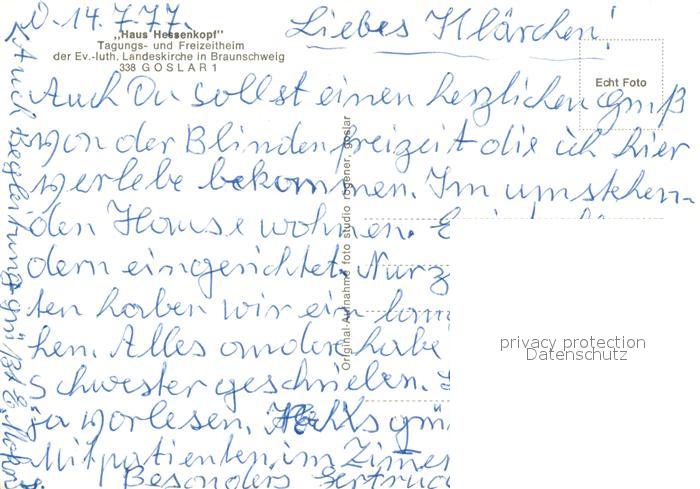 D. 14.7.77.
Liebes Klärchen!
„Haus Hessenkopf"
Tagungs- und Freizeitheim
der Ev.-luth. Landeskirche in Braunschweig
338 GOSLAR 1
Echt Foto
Auch Du sollst einen herzlichen Gruß
von der Blindenfreizeit die ich hier
verlebe bekommen. Im umstehen-
den Hause wohnen.
dern eingerichtet. Nur z
ten haben wir ein
hen. Alles andere habe
Schwester geschrieben.
ja vorlesen.
Mitpatienten im Zimmer
Besonders Gertrud
Auch Begleitung grüßt
Original-Aufnahme foto studio rögener, goslar
privacy protection
Datenschutz